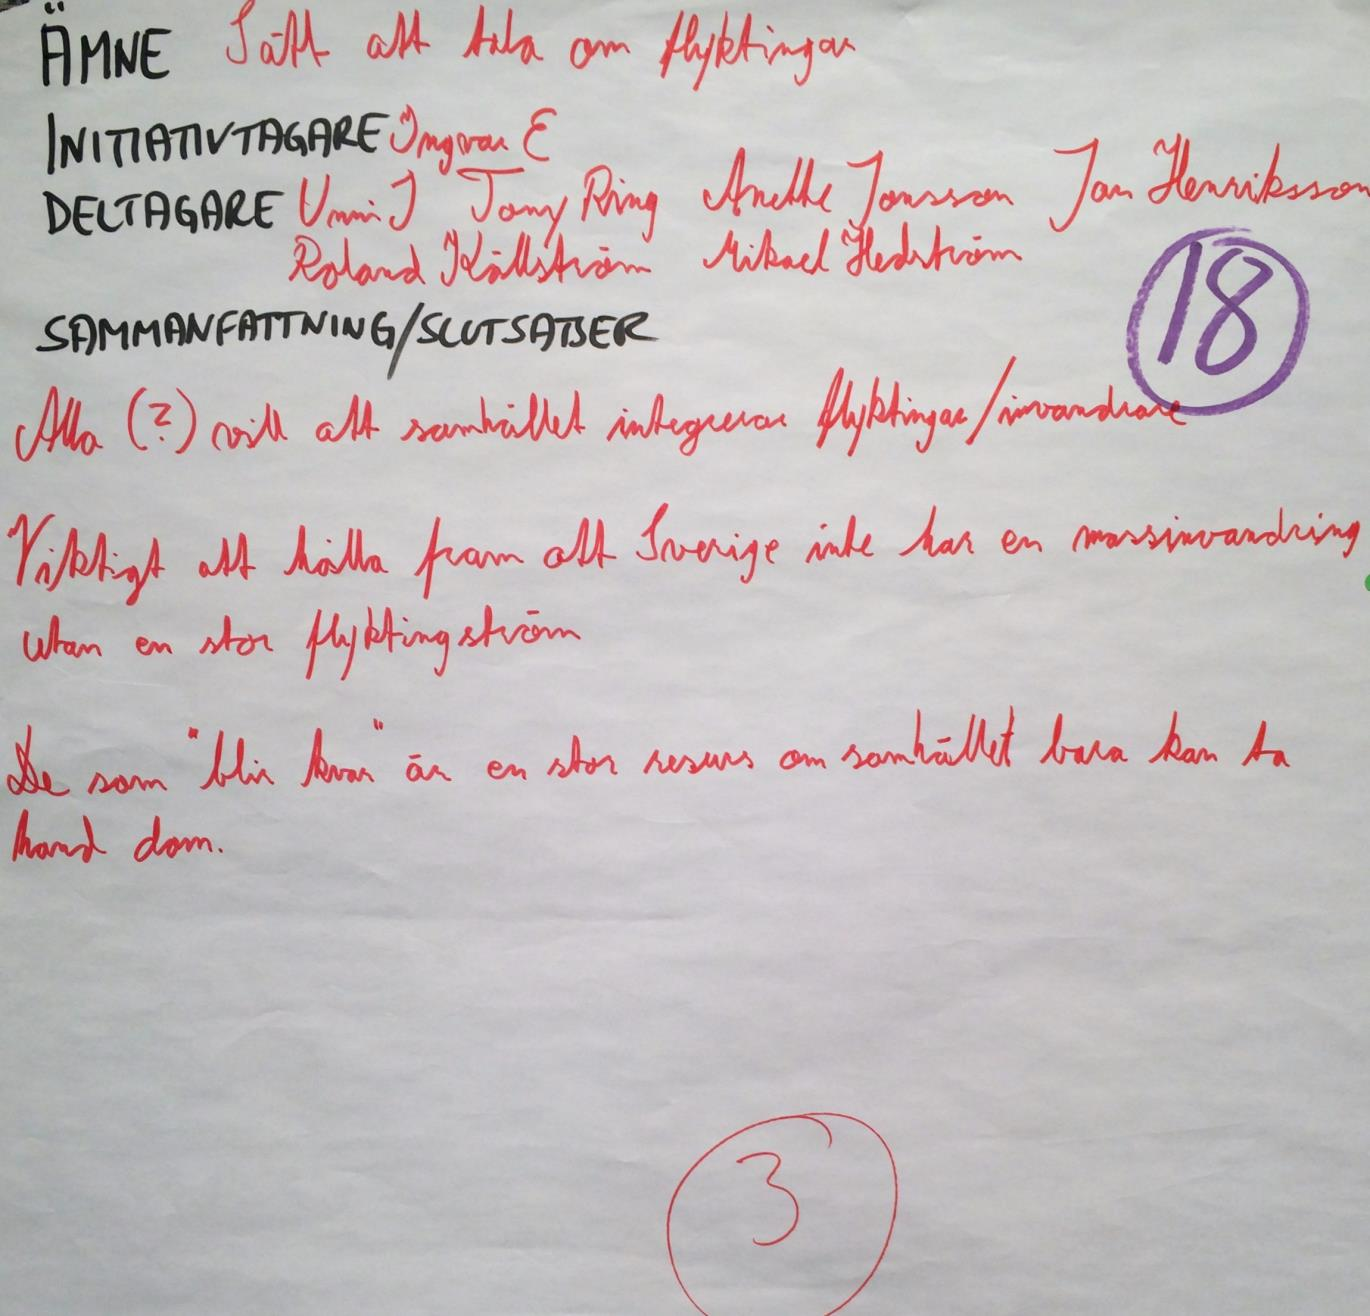 ÄMNE Sätt att tala om flyktingar
INITIATIVTAGARE Ingvar E
DELTAGARE Unni J Tony Ring Anethe Jonsson Jan Henriksson
Roland Källström Mikael Hedström
18
SAMMANFATTNING/SLUTSATSER
Alla (?) vill att samhället integrerar flyktingar/invandrare
Viktigt att hålla fram att Sverige inte har en massinvandring
utan en stor flyktingström
De som "blir kvar" är en stor resurs om samhället bara kan ta
hand dom.
3